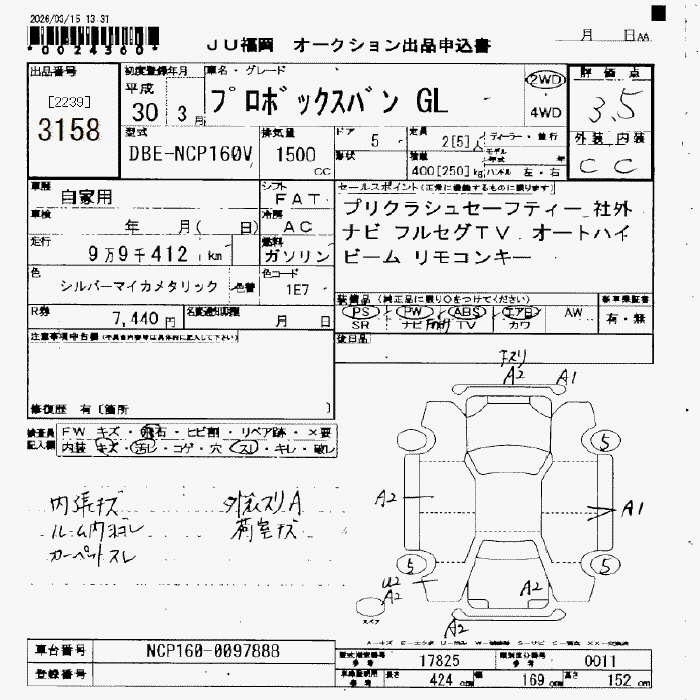 2026/03/15 13:31
*00024360*
JU福岡 オークション出品申込書
月 日AA
出品番号
[2239]
3158
初度登録年月
平成
30 3月
車名・グレード
プロボックスバン GL
2WD
4WD
評価点
3.5
外装 内装
C C
型式
DBE-NCP160V
排気量
1500
CC
ドア
5
形状
定員
2[5]人
積載
400[250]kg
ディーラー・並行
モデル
年式 年
ハンドル 左・右
車歴
自家用
シフト
FAT
車検
年 月( 日)
冷房
AC
走行
9万9千412 km
燃料
ガソリン
色
シルバーマイカメタリック
色替
色コード
1E7
R券
7,440 円
名変通知期限
月 日
セールスポイント(正常に機能するものに限ります)
プリクラシュセーフティー 社外
ナビ フルセグTV オートハイ
ビーム リモコンキー
装備品(純正品に限り○をつけてください)
PS PW ABS エアB AW
SR ナビ TV カワ
新車保証書
有・無
後日品
注意事項申告欄
修復歴 有〔箇所 〕
検査員
記入欄
FW キズ・飛石・ヒビ割・リペア跡・×要
内装 キズ・汚レ・コゲ・穴・スレ・キレ・破レ
内張キズ
ルーム内ヨゴレ
カーペットスレ
荷室キズ
A2 A1
A2
A1
5
5
5
5
U2
A2
A2
A2
スペア
車台番号
NCP160-0097888
登録番号
型式指定番号
参考
17825
類別区分番号
参考
0011
長さ
424 cm
幅
169 cm
高さ
152 cm